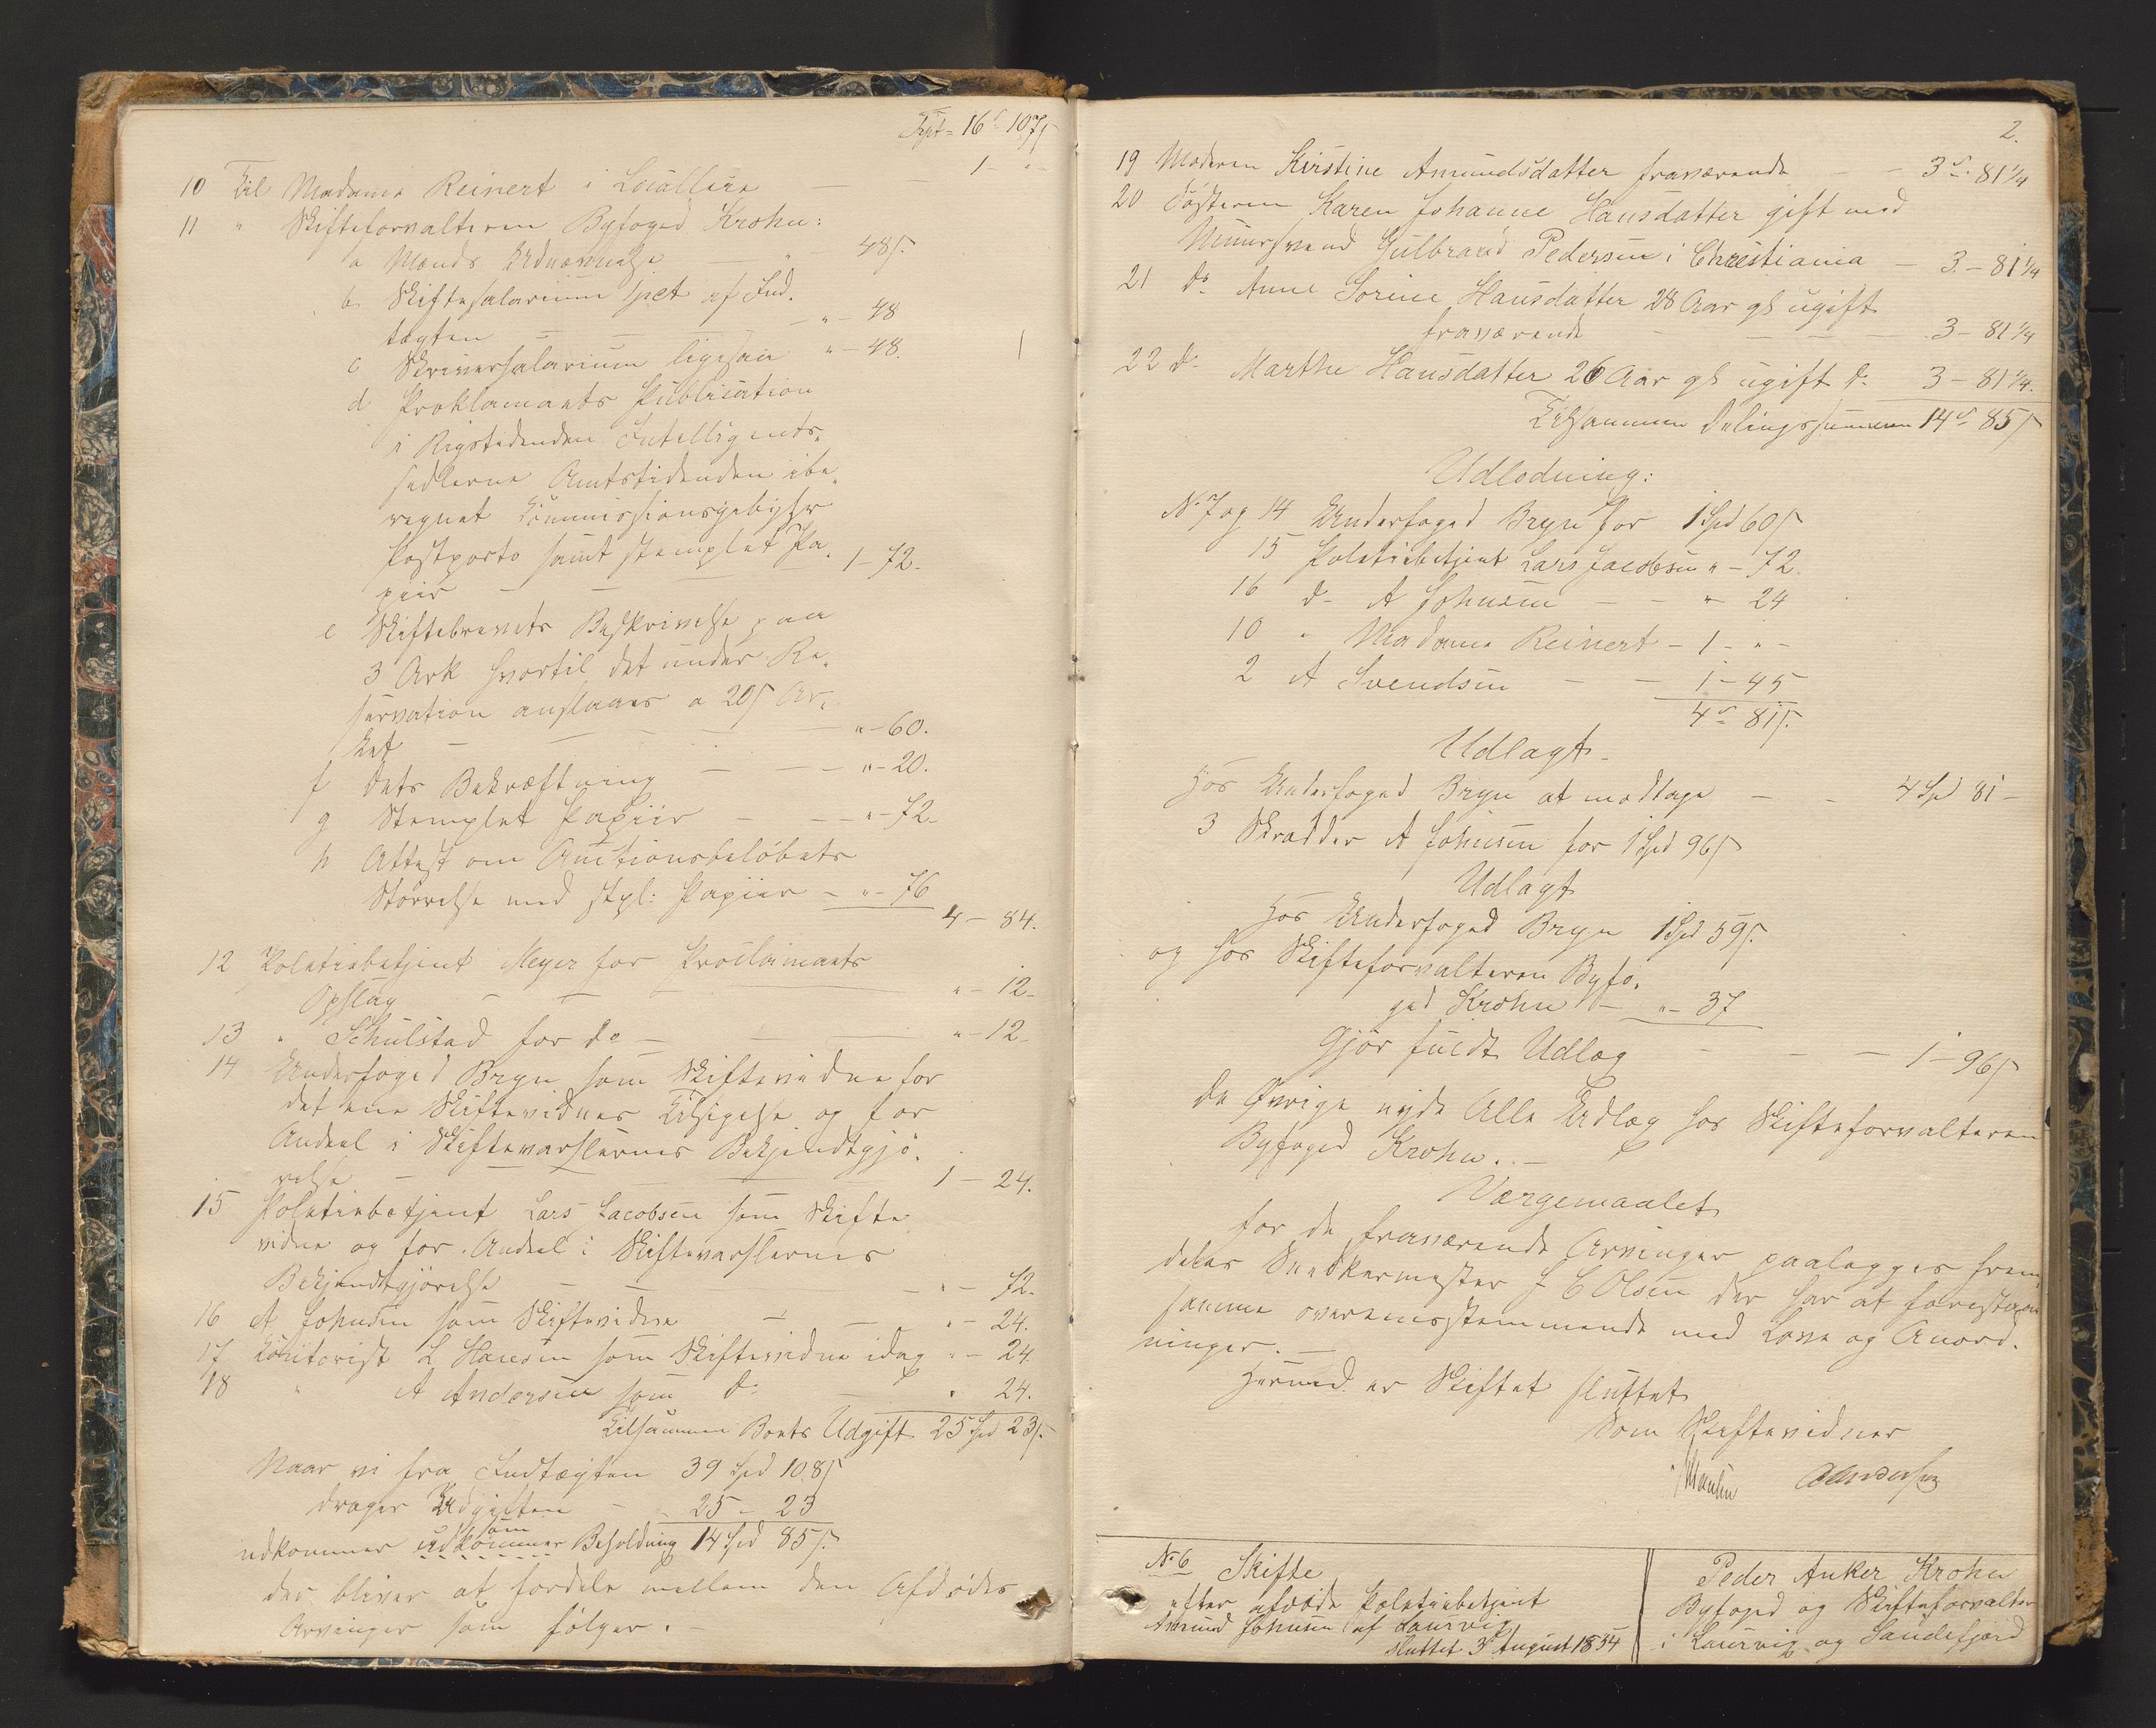 Trpt = 16 s 107 s
10 Til Madame Reinert i Localleie — — 1 - " -
11 " Skifteforvalteren Byfoged Krohn:
a Mænds Udnævnelse — " - 48 s.
b. Skiftesalarium 1 pct af Ind-
tægten — — — " - 48
c Skriversalarium ligesaa " - 48.
d Proklamaets Publication
i Rigstidenden Intelligents-
sedlerne Amtstidenden ibe-
regnet Commissionsgebyhr
Postporto samt stemplet Pa-
piir — — 1 - 72.
e Skiftebrevets Beskrivelse paa
3 Ark hvortil det under Re-
servation anslaaes a 20 s Ar-
ket — — — — " - 60.
f dets Bekræftning — — — " - 20.
g Stemplet Papiir — — — " - 72.
h Attest om Auctionsbeløbets
Størrelse med stpl: Papiir — " - 76
4 - 84.
12 Politiebetjent Meyer for Proclamaets
Opslag — — — — " - 12.
13 " Schulstad for do — — " - 12
14 Underfoged Bryn som Skiftevidne for
det ene Skiftevidnes Tilsigelse og for
Andeel i Skiftevarslernes Bekjendtgjø-
relse — — — 1 - 24.
15 Politiebetjent Lars Jacobsen som Skifte
vidne og for Andeel i Skiftevarslernes
Bekjendtgjørelse — — — " - 72.
16 A Johnsen som Skiftevidne — — " - 24.
17 Contorist L Hansen som Skiftevidne idag " - 24.
18 " A Andersen som do — " 24.
Tilsammen Boets Udgift 25 Spd 23 s.
Naar vi fra Indtægten 39 Spd 108 s
drager Udgiften — 25 - 23
udkommer udkommer som Beholdning 14 Spd 85 s.
der bliver at fordele mellem den Afdødes
Arvinger som følger. —
2.
19 Moderen Kirstine Amundsdatter fraværende — — 3 s. 81 1/4
20 Søsteren Karen Johanne Hansdatter gift med
Muursvend Gulbrand Pedersen i Christiania — 3 - 81 1/4
21 do Anne Sorine Hansdatter 28 Aar gl ugift
fraværende — — — — 3 - 81 1/4
22 do Marthe Hansdatter 26 Aar gl ugift do 3 - 81 1/4.
Tilsammen Delingssummen 14 s 85 s
Udlodning:
No 7 og 14 Underfoged Bryn for 1 Spd 60 s
15 Politiebetjent Lars Jacobsen " - 72.
16 do A Johnsen — — " - 24
10 " Madame Reinert - 1 - " -
2 A Svendsen — — 1 - 45
4 s 81 s.
Udlagt
hos Underfoged Bryn at modtage — — 4 Spd 81 —
3 Skrædder A Johnsen for 1 Spd 96 s
Udlagt
hos Underfoged Bryn 1 Spd 59 s.
og hos Skifteforvalteren Byfo-
ged Krohn — " - 37
Gjør fuldt Udlæg — — — 1 - 96 s
De Øvrige nyde Alle Udlæg hos Skifteforvalteren
Byfoged Krohn. —
Værgemaalet
for de fraværende Arvinger paalægges frem-
deles Snedkermester J C Olsen der har at forestaae
samme overensstemmende med Love og Anord-
ninger. —
Hermed er Skiftet sluttet
Som Skiftevidner
AAndersen
No 6 Skifte
efter afdøde Politiebetjent
Amund Johnsen af Laurvig
sluttet 3 August 1854
Peder Anker Krohn
Byfoged og Skifteforvalter
i Laurvig og Sandefjord